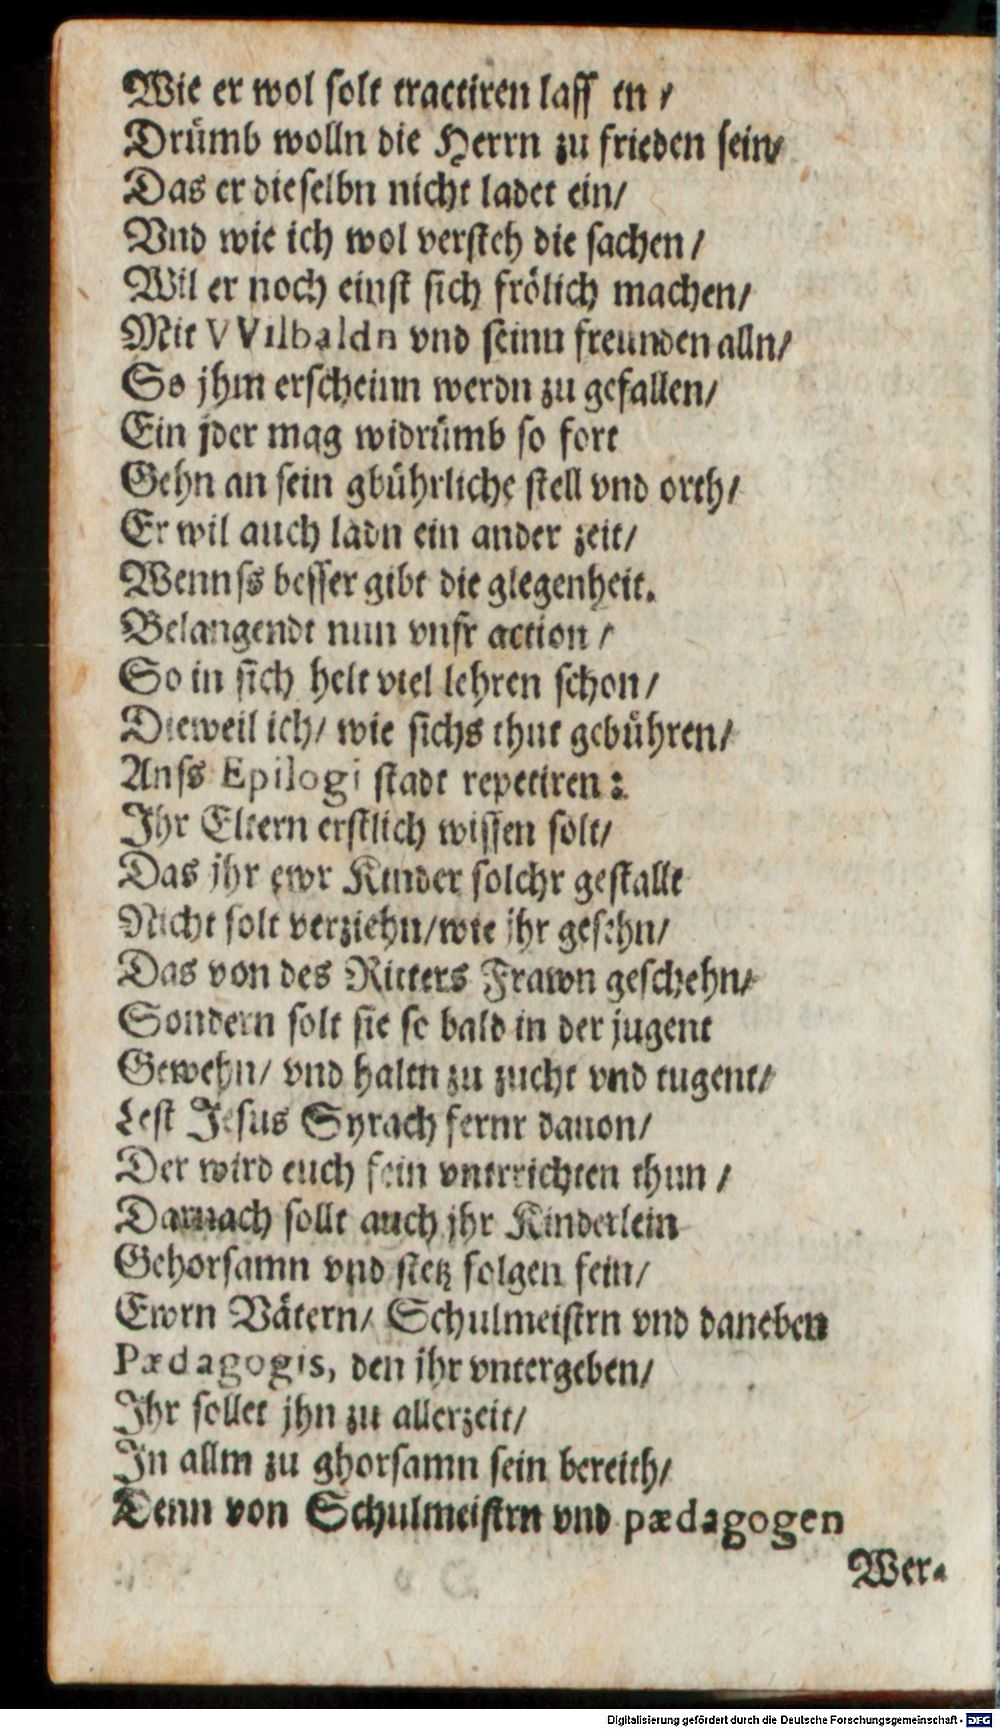 Wie er wol solt tractiren lassen /
Drümb wolln die Herrn zu frieden sein/
Das er dieselbn nicht ladet ein/
Vnd wie ich wol versteh die sachen /
Wil er noch einst sich frölich machen/
Mit VVilbaldn vnd seinn freunden alln/
So jhm erscheinn werdn zu gefallen/
Ein jder mag widrümb so fort
Gehn an sein gbührliche stell vnd orth/
Er wil auch ladn ein ander zeit/
Wennss besser gibt die glegenheit.
Belangendt nun vnsr action /
So in sich helt viel lehren schon/
Dieweil ich/ wie sichs thut gebühren/
Anss Epilogi stadt repetiren:
Ihr Eltern erstlich wissen solt/
Das jhr ewr Kinder solchr gestallt
Nicht solt verziehn/wie jhr gesehn/
Das von des Ritters Frawn geschehn/
Sondern solt sie so bald in der jugent
Gewehn/ vnd haltn zu zucht vnd tugent/
Lest Jesus Syrach fernr dauon/
Der wird euch fein vnterrichten thun /
Darnach sollt auch jhr Kinderlein
Gehorsamn vnd stetz folgen fein/
Ewrn Vätern/ Schulmeistrn vnd daneben
Pædagogis, den jhr vntergeben/
Ihr sollet jhn zu allerzeit/
In allm zu ghorsamn sein bereith/
Denn von Schulmeistrn vnd pædagogen
Wer-
Digitalisierung gefördert durch die Deutsche Forschungsgemeinschaft - DFG